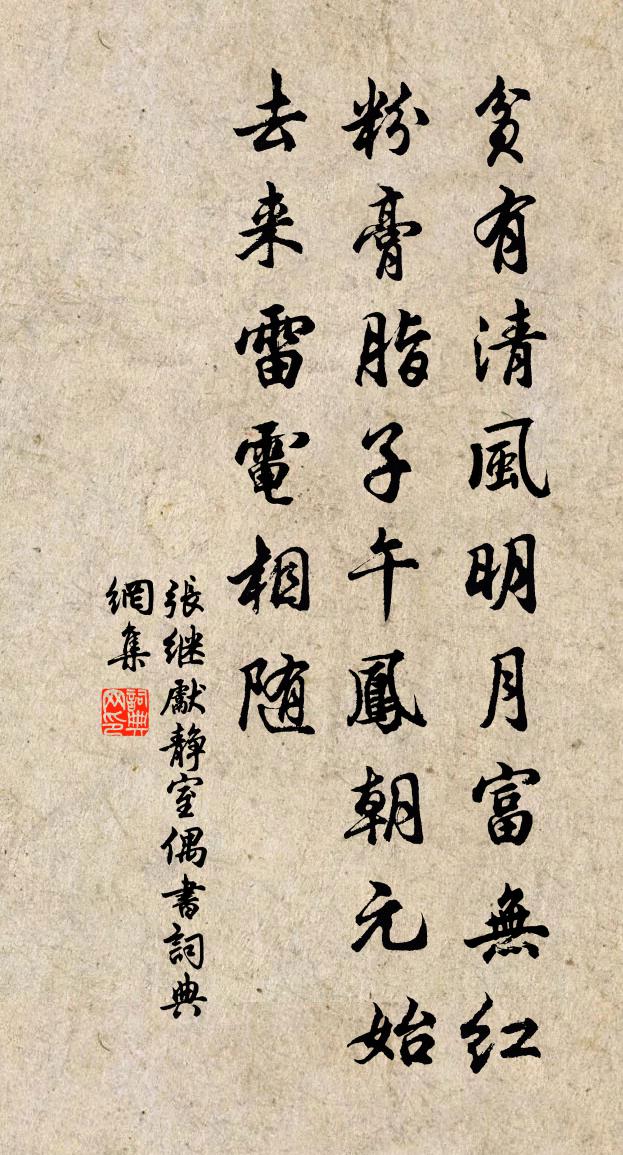 貧有清風明月富無紅
粉膏脂子午鳳朝元始
去来雷電相随
張継獻靜室偶書詞典
網集
詞典
网印